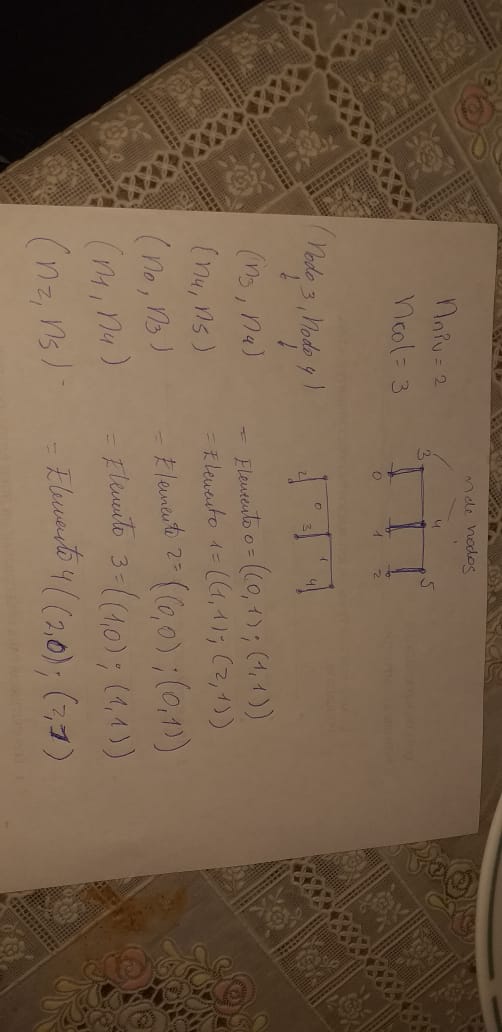 n de nodos
nniv = 2
ncol = 3
3 4 5
0 1 2
0 1
2 3 4
(Nodo 3, Nodo 4)
(n3, n4) = Elemento 0 = ((0,1) ; (1,1))
(n4, n5) = Elemento 1 = ((1,1) ; (2,1))
(n0, n3) = Elemento 2 = ((0,0) ; (0,1))
(n1, n4) = Elemento 3 = ((1,0) ; (1,1))
(n2, n5) = Elemento 4 ((2,0) ; (2,1)